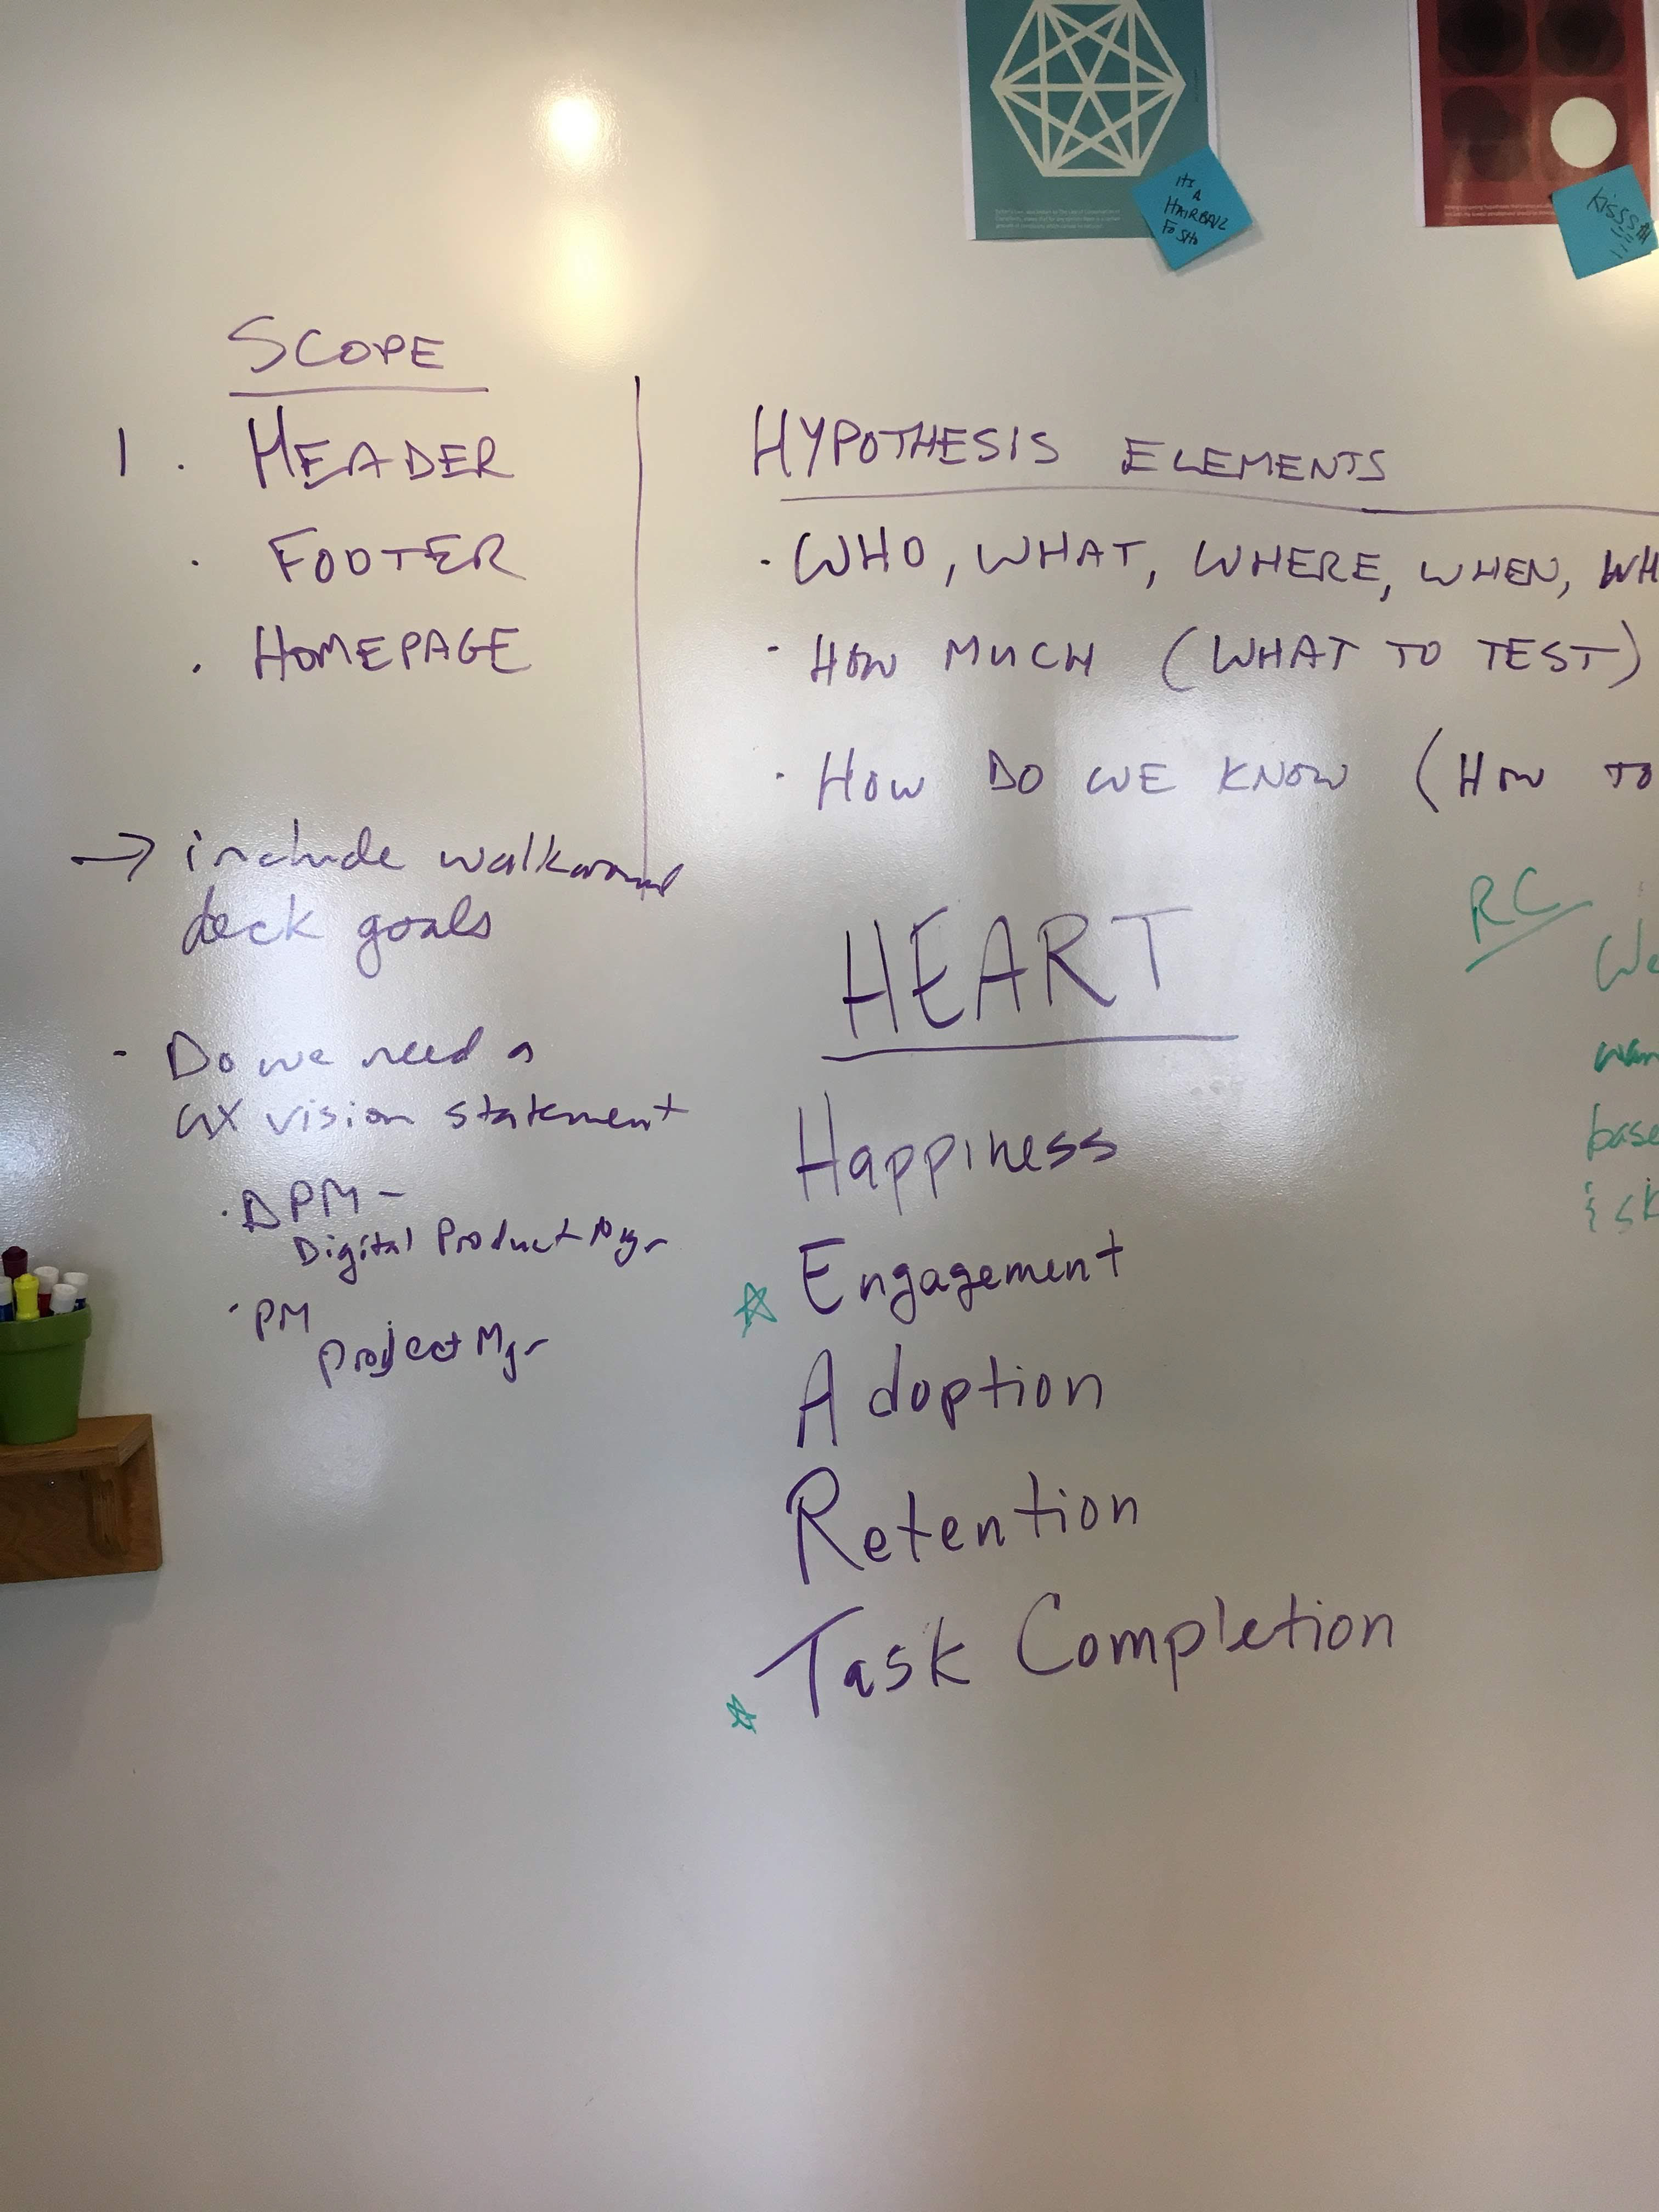 ITS
A
HAIRBALL
FO SHO
KISSS
SCOPE
1 . HEADER
. FOOTER
. HOMEPAGE
→ include walkaround
deck goals
- Do we need a
UX vision statement
· DPM -
Digital Product Mgr
· PM
Project Mgr
HYPOTHESIS ELEMENTS
· WHO, WHAT, WHERE, WHEN, WH
· HOW MUCH (WHAT TO TEST)
· HOW DO WE KNOW (HOW TO
HEART
Happiness
☆ Engagement
Adoption
Retention
☆ Task Completion
RC
We
wan
base